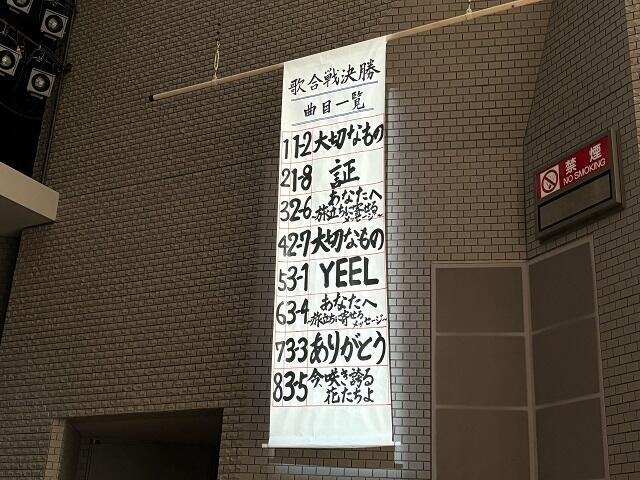 歌合戦決勝
曲目一覧
1 1-2 大切なもの
2 1-8 証
3 2-6 あなたへ
-旅立ちに寄せる
メッセージ-
4 2-7 大切なもの
5 3-1 YEEL
6 3-4 あなたへ
-旅立ちに寄せる
メッセージ-
7 3-3 ありがとう
8 3-5 今・咲き誇る
花たちよ
禁煙
NO SMOKING